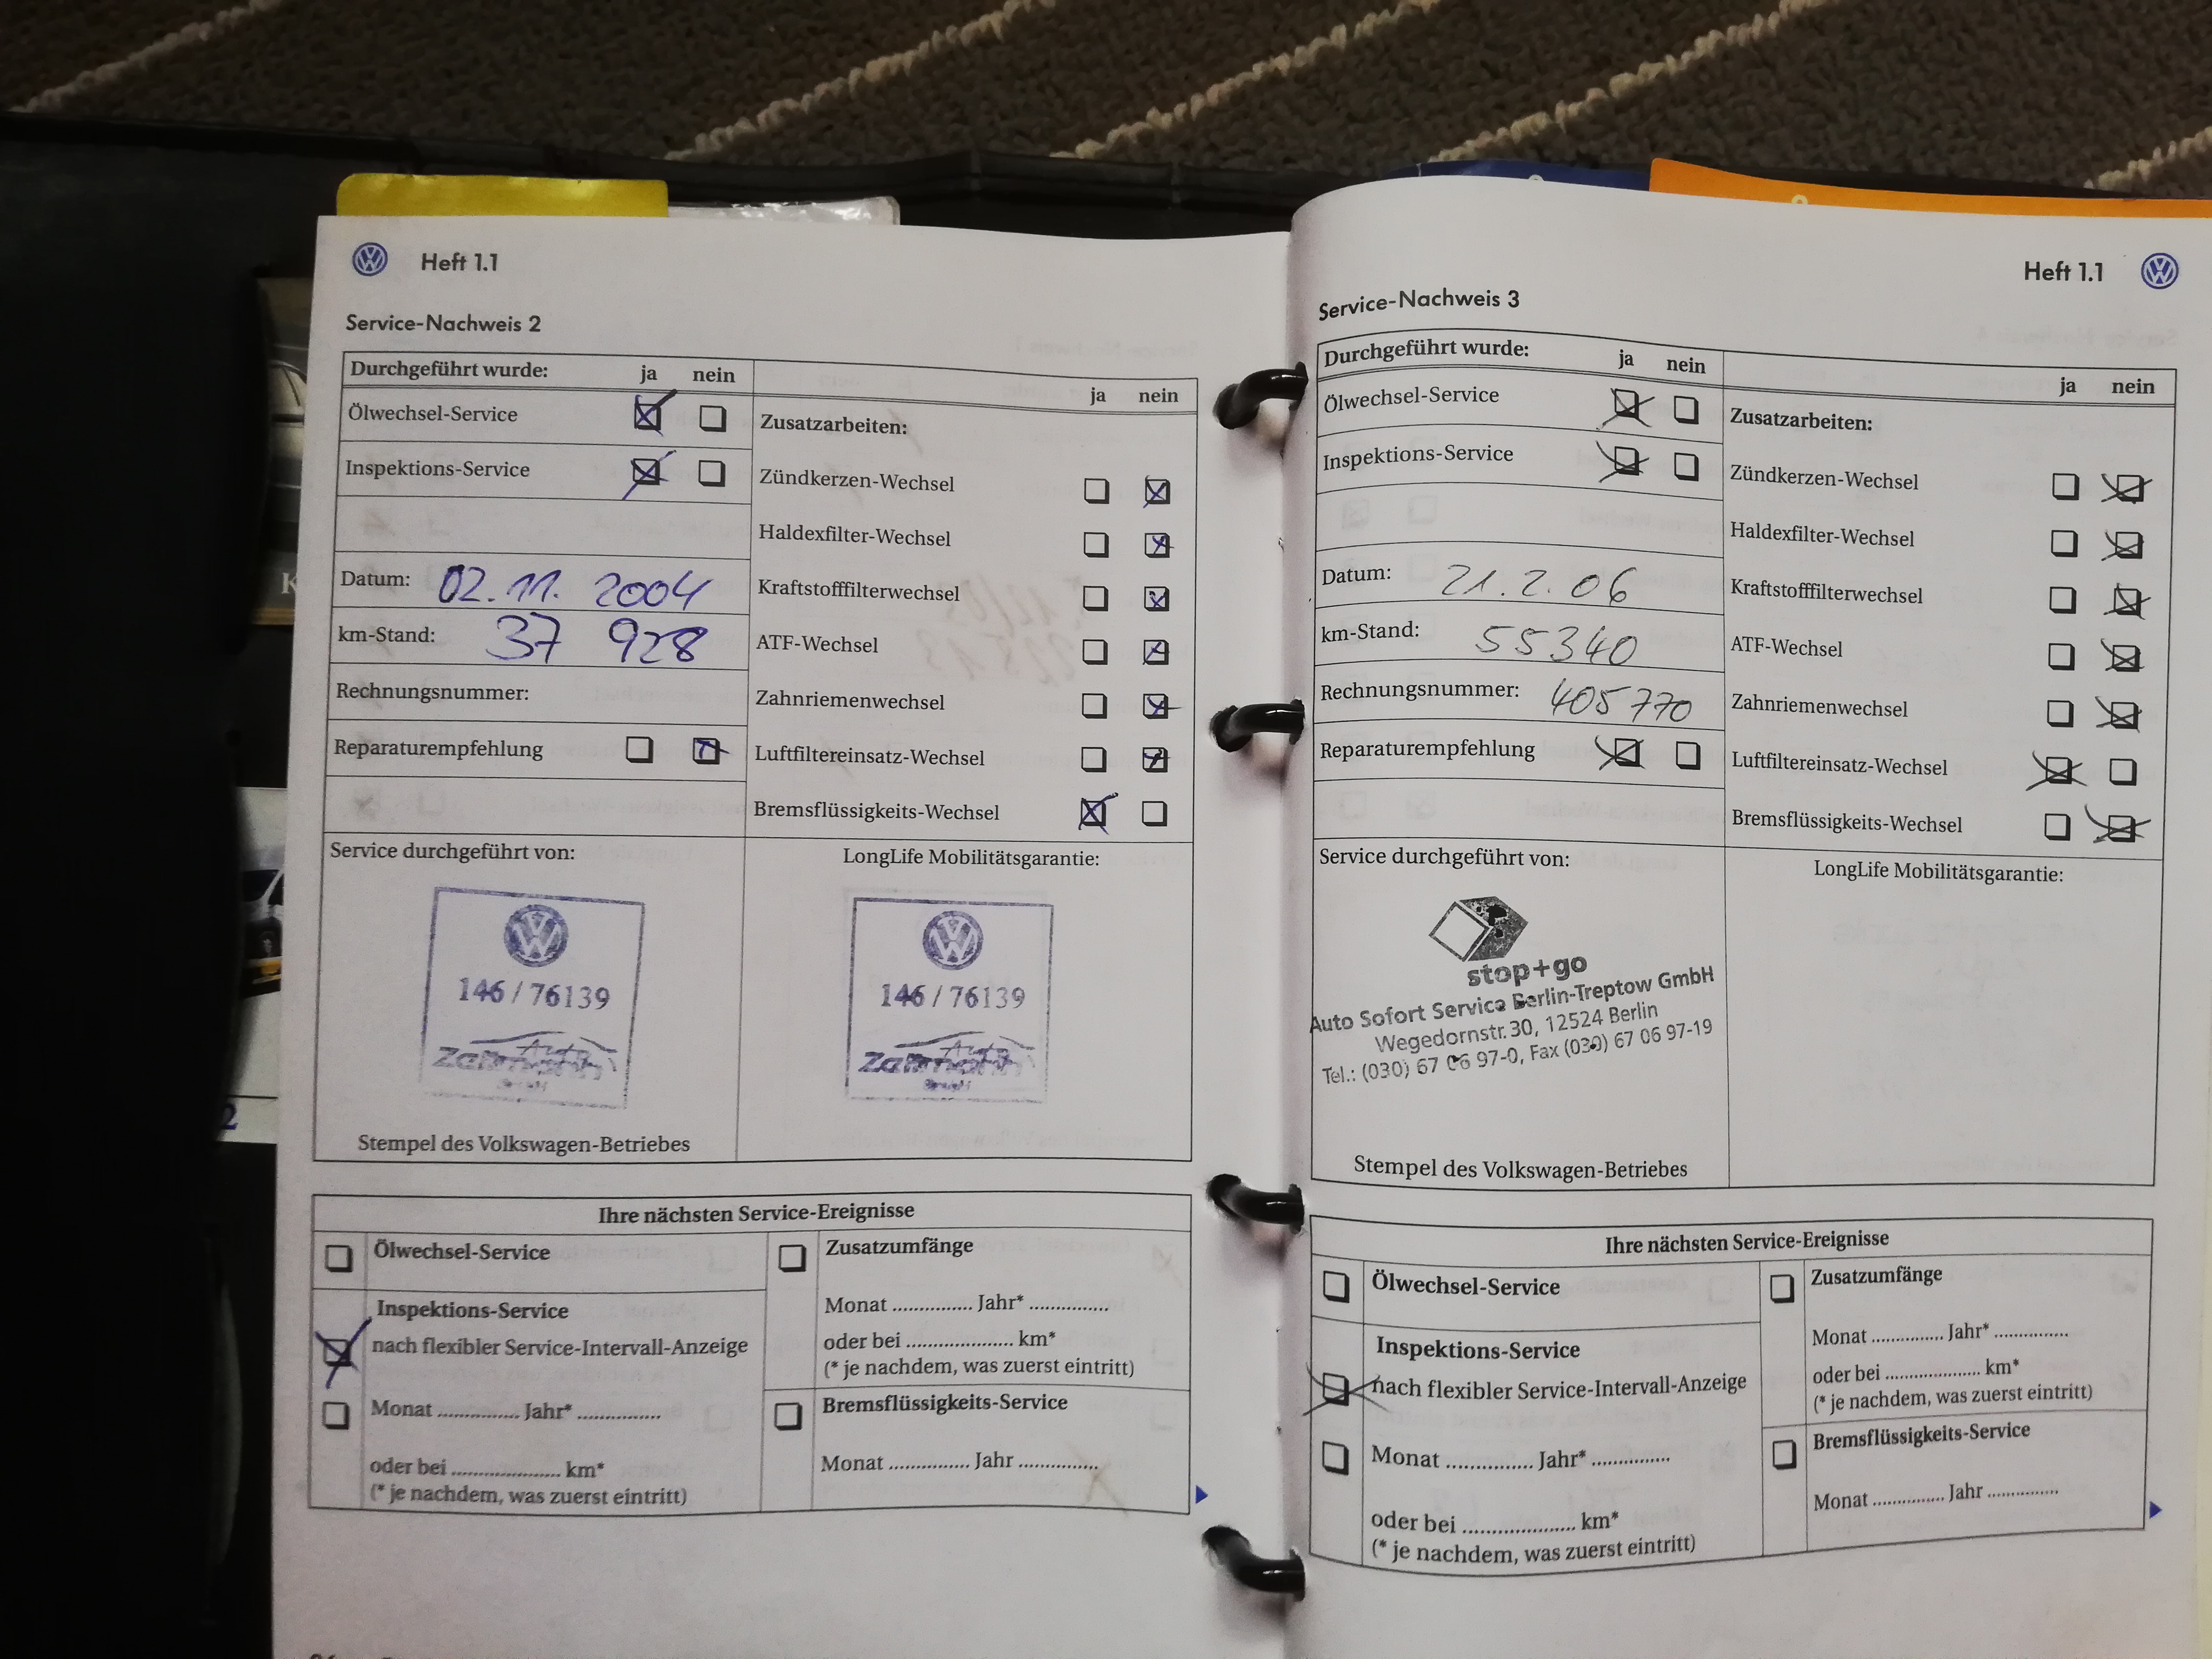 Heft 1.1
Service-Nachweis 2
Durchgeführt wurde: ja nein
Ölwechsel-Service
Inspektions-Service
Datum: 02.11. 2004
km-Stand: 37 928
Rechnungsnummer:
Reparaturempfehlung
ja nein
Zusatzarbeiten:
Zündkerzen-Wechsel
Haldexfilter-Wechsel
Kraftstofffilterwechsel
ATF-Wechsel
Zahnriemenwechsel
Luftfiltereinsatz-Wechsel
Bremsflüssigkeits-Wechsel
Service durchgeführt von:
146 / 76139
Auto
Stempel des Volkswagen-Betriebes
LongLife Mobilitätsgarantie:
146 / 76139
Auto
Ihre nächsten Service-Ereignisse
Ölwechsel-Service
Inspektions-Service
nach flexibler Service-Intervall-Anzeige
Monat ............... Jahr* ...............
oder bei .................... km*
(* je nachdem, was zuerst eintritt)
Zusatzumfänge
Monat ............... Jahr* ...............
oder bei .................... km*
(* je nachdem, was zuerst eintritt)
Bremsflüssigkeits-Service
Monat ............... Jahr ...............
Heft 1.1
Service-Nachweis 3
Durchgeführt wurde: ja nein
Ölwechsel-Service
Inspektions-Service
Datum: 21.2.06
km-Stand: 55340
Rechnungsnummer: 405770
Reparaturempfehlung
ja nein
Zusatzarbeiten:
Zündkerzen-Wechsel
Haldexfilter-Wechsel
Kraftstofffilterwechsel
ATF-Wechsel
Zahnriemenwechsel
Luftfiltereinsatz-Wechsel
Bremsflüssigkeits-Wechsel
Service durchgeführt von:
stop+go
Auto Sofort Service Berlin-Treptow GmbH
Wegedornstr. 30, 12524 Berlin
Tel.: (030) 67 06 97-0, Fax (030) 67 06 97-19
Stempel des Volkswagen-Betriebes
LongLife Mobilitätsgarantie:
Ihre nächsten Service-Ereignisse
Ölwechsel-Service
Inspektions-Service
nach flexibler Service-Intervall-Anzeige
Monat ............... Jahr* ...............
oder bei .................... km*
(* je nachdem, was zuerst eintritt)
Zusatzumfänge
Monat ............... Jahr* ...............
oder bei .................... km*
(* je nachdem, was zuerst eintritt)
Bremsflüssigkeits-Service
Monat ............... Jahr ...............